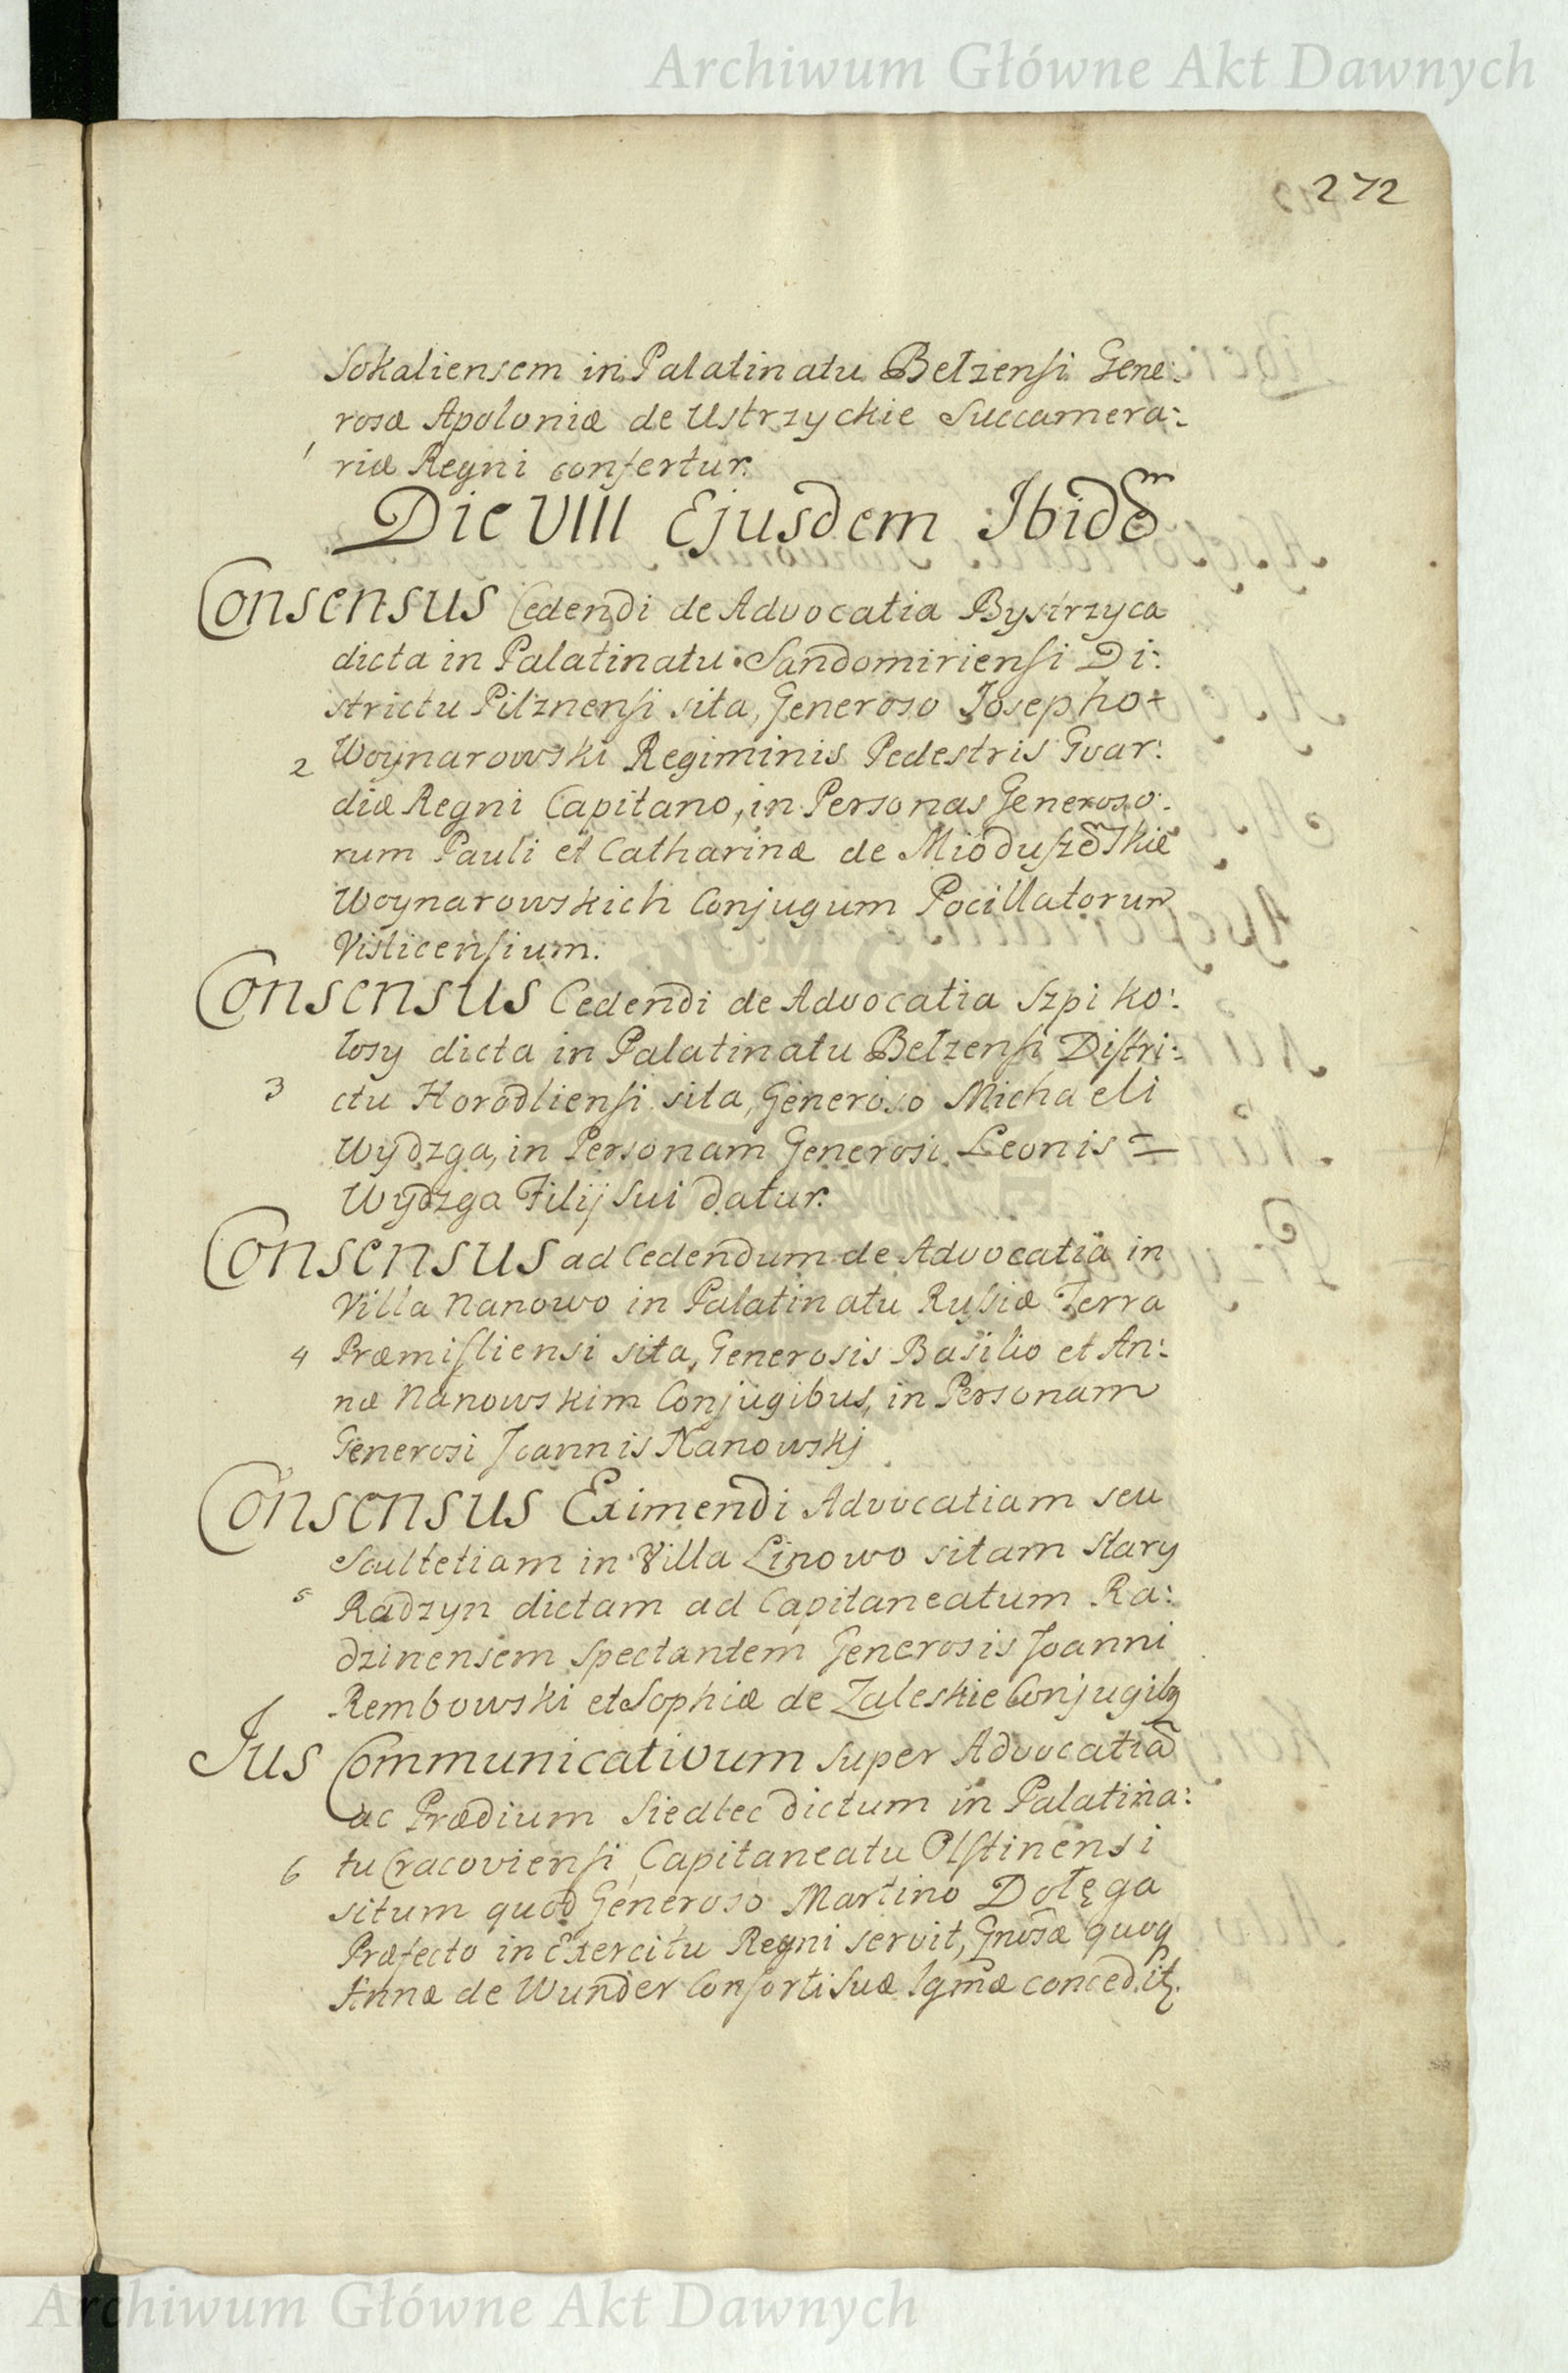 Archiwum Główne Akt Dawnych
272
Sokaliensem in Palatinatu Bełzensi Gene:
rosæ Apoloniæ de Ustrzyckie Succamera:
1 riæ Regni confertur.
Die VIII Ejusdem Ibidem
Consensus Cedendi de Advocatia Bystrzyca
dicta in Palatinatu Sandomiriensi Di:
strictu Pilznensi sita, Generoso Josepho
2 Woynarowski Regiminis Pedestris Gvar:
diæ Regni Capitano, in Personas Generoso:
rum Pauli et Catharinæ de
Woynarowskich Conjugum Pocillatorum
Visticensium.
Consensus Cedendi de Advocatia Szpiko:
łosy dicta in Palatinatu Bełzensi Distri:
3 ctu Horodliensi sita, Generoso Michaeli
Wydzga, in Personam Generosi Leonis
Wydzga Filij Sui datur.
Consensus ad Cedendum de Advocatia in
Villa Nanowo in Palatinatu Russiæ Terra
4 Præmisliensi sita, Generosis Basilio et An:
næ Nanowskim Conjugibus, in Personam
Generosi Joannis Nanowskj
Consensus Eximendi Advocatiam seu
Scultetiam in Villa Linowo sitam Stary
5 Radzyn dictam ad Capitaneatum Ra:
dzinensem spectantem Generosis Joanni
Rembowski et Sophiæ de Zaleskie Conjugibq
Jus Communicativum super Advocatiã
ac Prædium Siedlec dictum in Palatina:
6 tu Cracoviensi Capitaneatu Olstinensi
situm quod Generoso Martino Dołęga
Præfecto in Exercitu Regni servit, Gnosæ quoq
Annæ de Wunder Consorti Suæ
Archiwum Główne Akt Dawnych